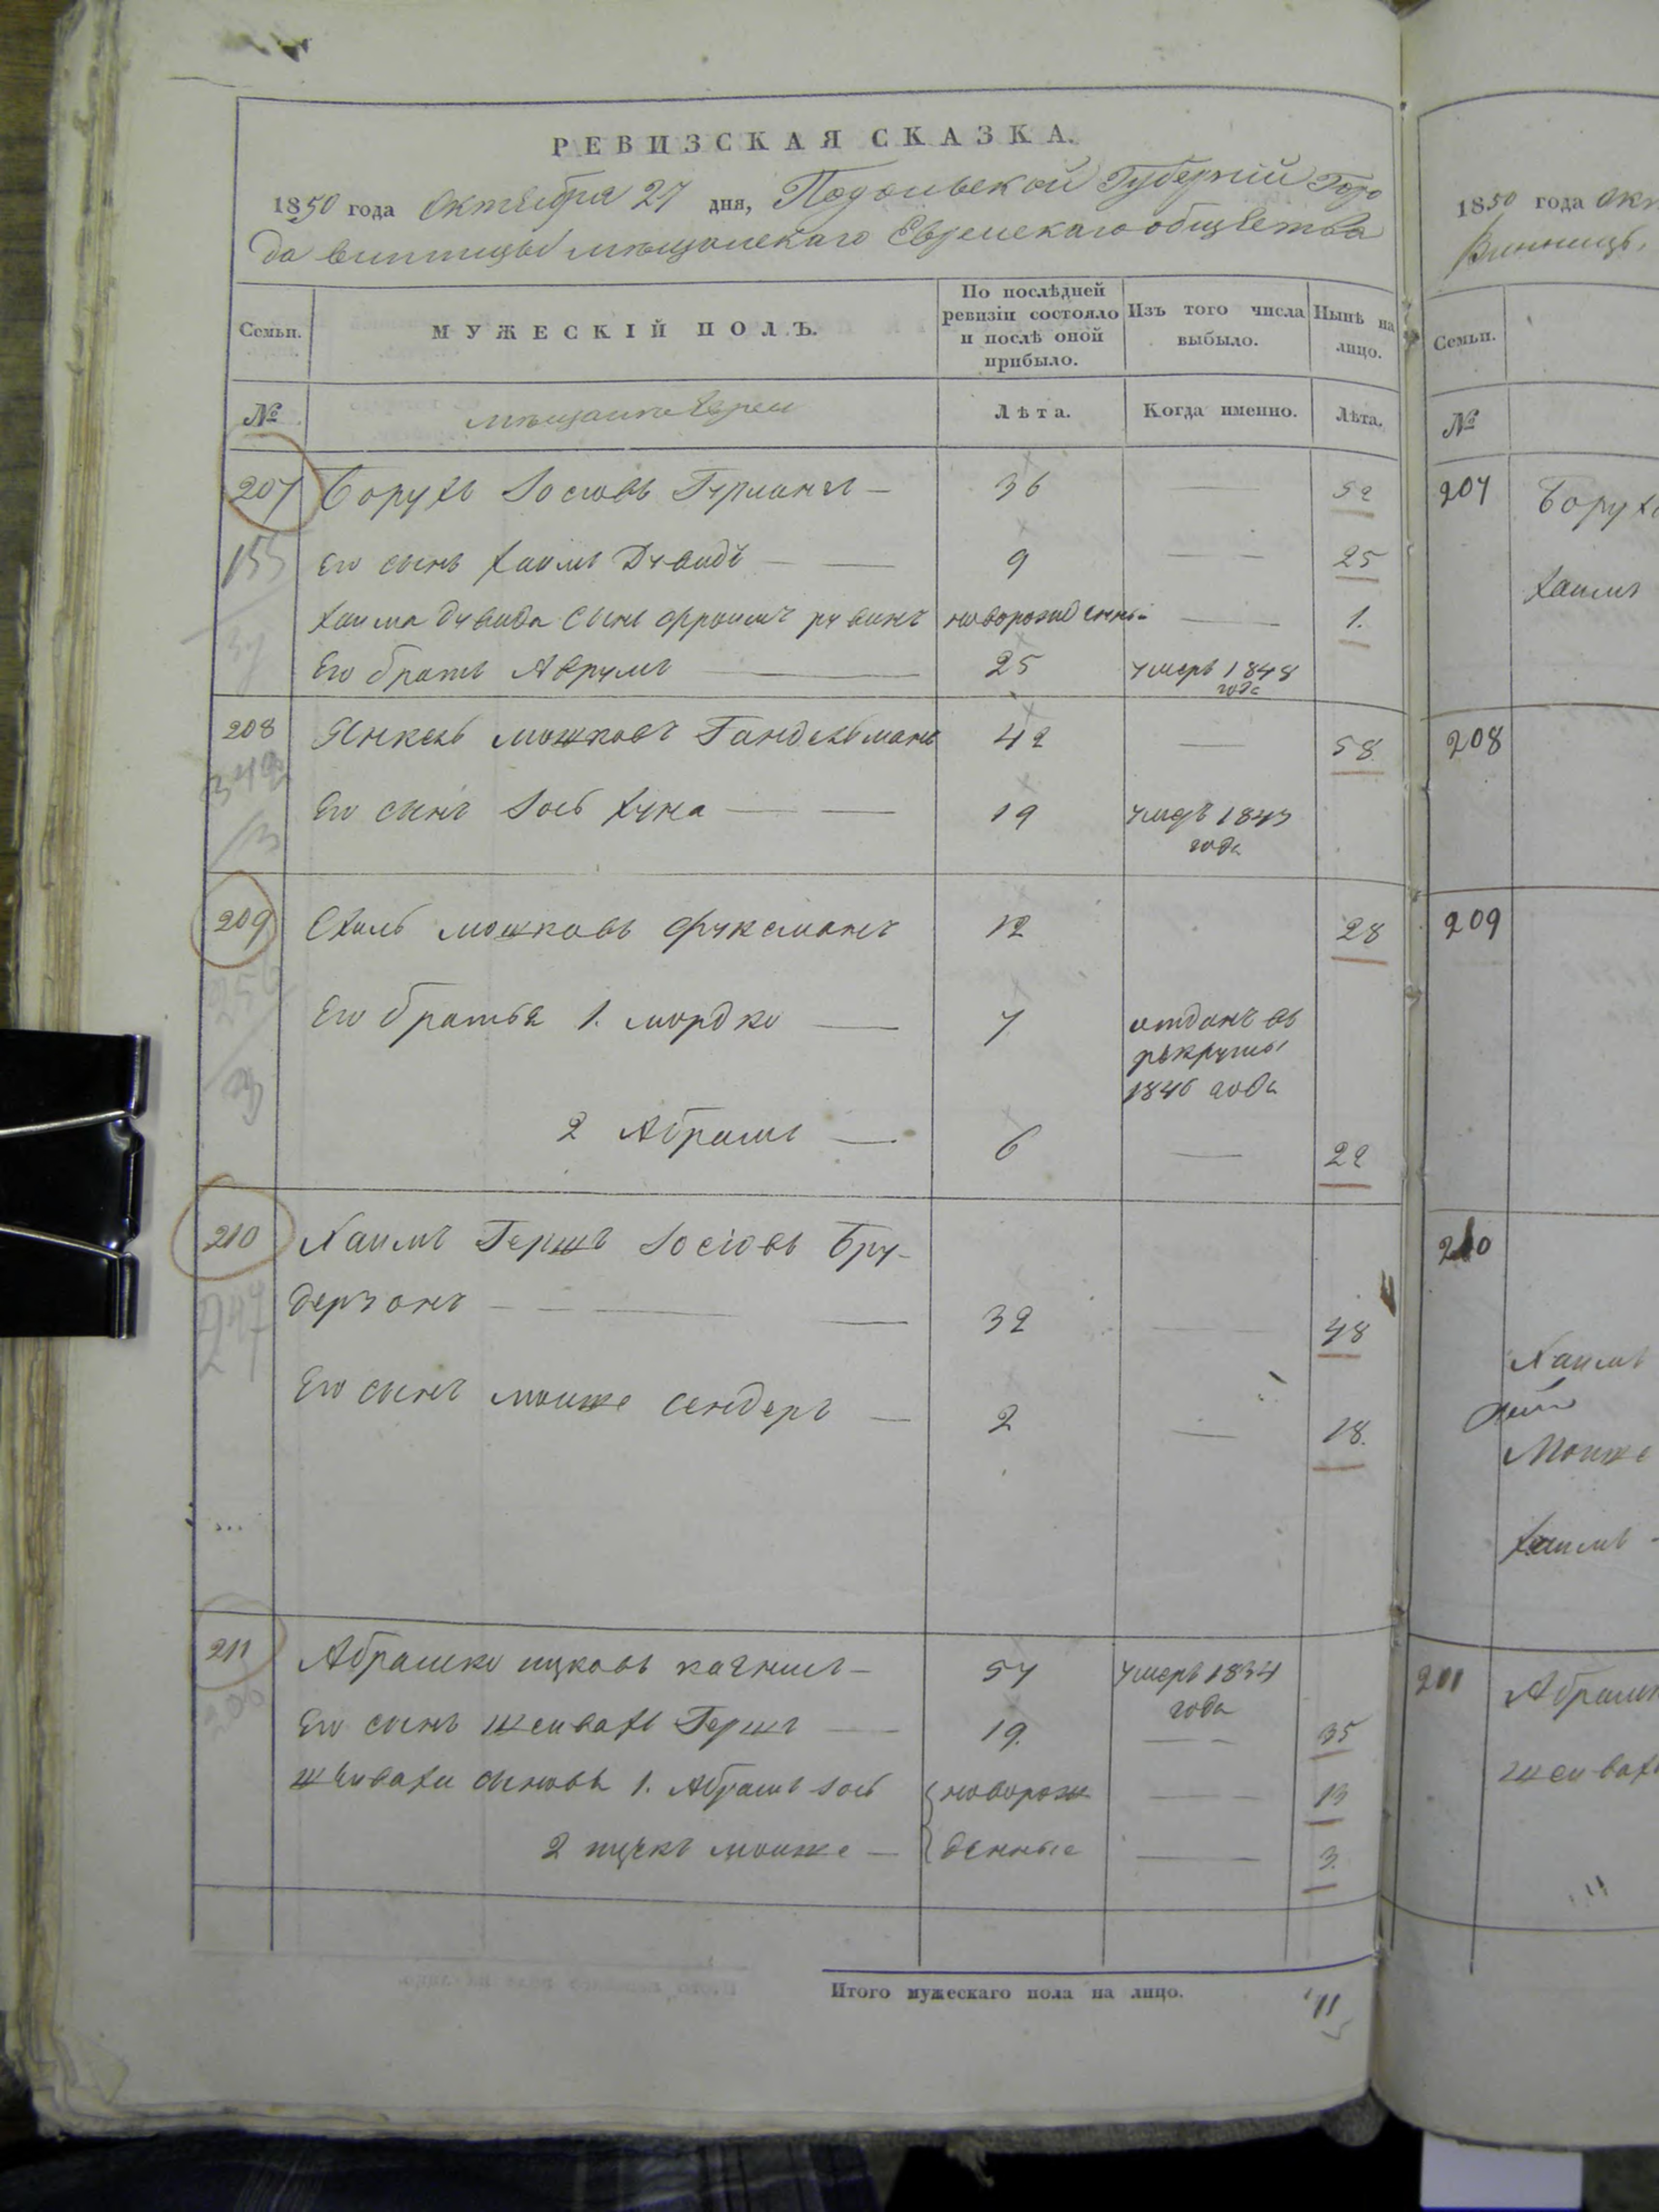 РЕВИЗСКАЯ СКАЗКА.
1850 года Октября 27 дня, Подольской Губерніи Горо
да винницы мѣщанскаго Еврейскаго общества
Семьи.
МУЖЕСКІЙ ПОЛЪ.
По послѣдней ревизіи состояло и послѣ оной прибыло.
Изъ того числа выбыло.
Нынѣ на лицо.
№
мѣщане Евреи
Лѣта.
Когда именно.
Лѣта.
207 Борухъ Іосіовъ — 36 — 52
155
Его сынъ Хаимъ Дувидъ — — 9 — — 25
Хаима Дувида сынъ Фроимъ рувинъ новорожденный — 1.
Его братъ Аврумъ — 25 умеръ 1848
года
208 Янкель мошковъ Гандельманъ 42 — 58
349
Его сынъ Іось Хуна — — 19 умеръ 1843
года
3
209 Схиль мошковъ Фуксманъ 12 28
256
Его братья 1. мордко — 7 отданъ въ
рекруты
1846 года
3
2 Абрамъ — 6 — 22
210 Хаимъ Гершъ Іосіовъ Бру-
дерзонъ — — — 32 — — 48
247
Его сынъ моише сендеръ — 2 — 18.
211 Абрашко ицковъ — 57 умеръ 1834
года
200
Его сынъ шеивахъ Гершъ — 19. — — 35
шеиваха сыновья 1. Абрамъ Іось новорож — — 13
2 ицекъ моише — денные — 3.
Итого мужескаго пола на лицо. 11
1850 года Окт
Винницы,
Семьи.
№
207 Борух
Хаимъ
208
209
210
Хаимъ
Моише
Хаимъ
Абрашк
шеивах